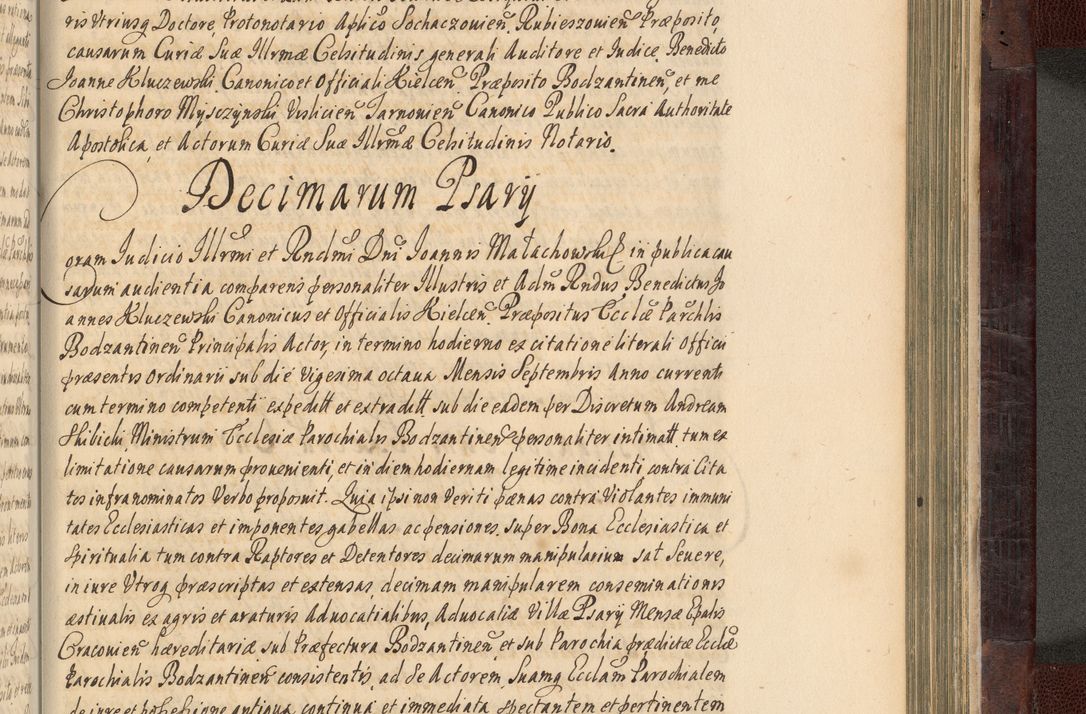 ris Utriusq Doctore, Protonotario Aplico Sochaczovien. Rubieszovien Præposito,
causarum Curiæ Suæ Illrmæ Celsitudinis generali Auditore et Iudice. Benedicto
Ioanne Kluczewski. Canonico et Officiali Kielcen. Præposito Bodzantinen, et me
Christophoro Mysczynski Visliciens Tarnovien Canonico Publico Sacra Authoritate
Apostolica, et Actorum Curiæ Suæ Illrmæ Celsitudinis Notario.
Decimarum Psarÿ
oram Iudicio Illrmi et Rndmi Dni Ioannis Małachowski in publica cau
sarum audientia comparens personaliter Illustris et Adm Rndus Benedictus Jo
annes Kluczewski Canonicus et Officialis Kielcen. Præpositus Ecclæ Parchlis
Bodzantinen Principalis Actor, in termino hodierno ex citatione literali Officii
præsentis Ordinarii sub die vigesima octaua Mensis Septembris Anno currenti
cum termino competenti expedditt et extraditt. sub die eadem per Discretum Andream
Skibicki Ministrum Ecclesiæ Parochialis Bodzantinen personaliter intimatt tum ex
limitatione causarum prouenienti, et in diem hodiernam legitime incidenti contra Cita
tos infranominatos Verbo proposuit. Quia ipsi non veriti pænas contra Violantes immuni
tates Ecclesiasticas et imponentes gabellas ac pensiones. super Bona Ecclesiastica et
Spiritualia tum contra Raptores et Detentores decimarum manipularium sat seuere,
in iure Utroq præscriptas et extensas, decimam manipularem conseminationis
æstiualis ex agris et araturis Aduocatialibus, Aduocatiæ Villæ Psarÿ Mensæ Epalis
Cracovien hæreditariæ, sub Præfectura Bodzantinen, et sub Parochia prædictæ Ecclæ
Parochialis Bodzantinen consistentis, ad se Actorem, Suamq Ecclam Parochialem
de iure et possessione antiqua, continua et immediata spectantem et pertinentem